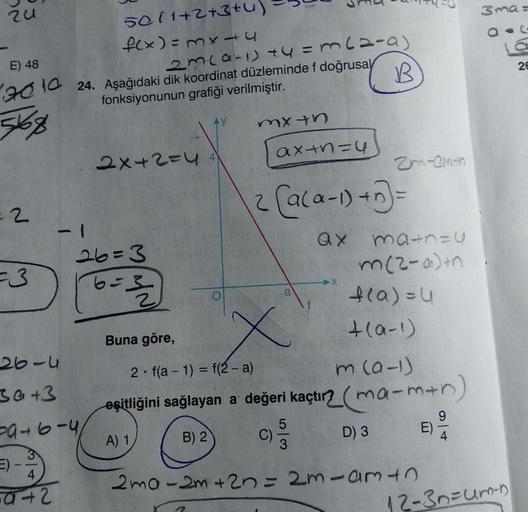 24
50(1+2+3+4)
3ma=
f(x)=mx+4
2m(a-1)+4=m(2-a)
E) 48
B
26
24. Aşağıdaki dik koordinat düzleminde f doğrusal
fonksiyonunun grafiği verilmiştir.
568
y
mx+n
ax+n=4
2x+2=4
4
2m-am+n
2[a(a-1)+n]=
=2
-1
ax ma+n=4
2b=3
m(2-a)+n
=3
b=3/2
O
a
x
f
f(a)=4
f(a-1)
Buna göre,
2b-4
2 · f(a – 1) = f(2 – a)
m(a-1)
3a+3
eşitliğini sağlayan a değeri kaçtır?
2(ma-m+n)
=a+b-4
A) 1
B) 2
C) 5/3
D) 3
E) 9/4
E) -3/4
2ma-2m+2n=2m-am+n
a+2
12-3n=4m-n